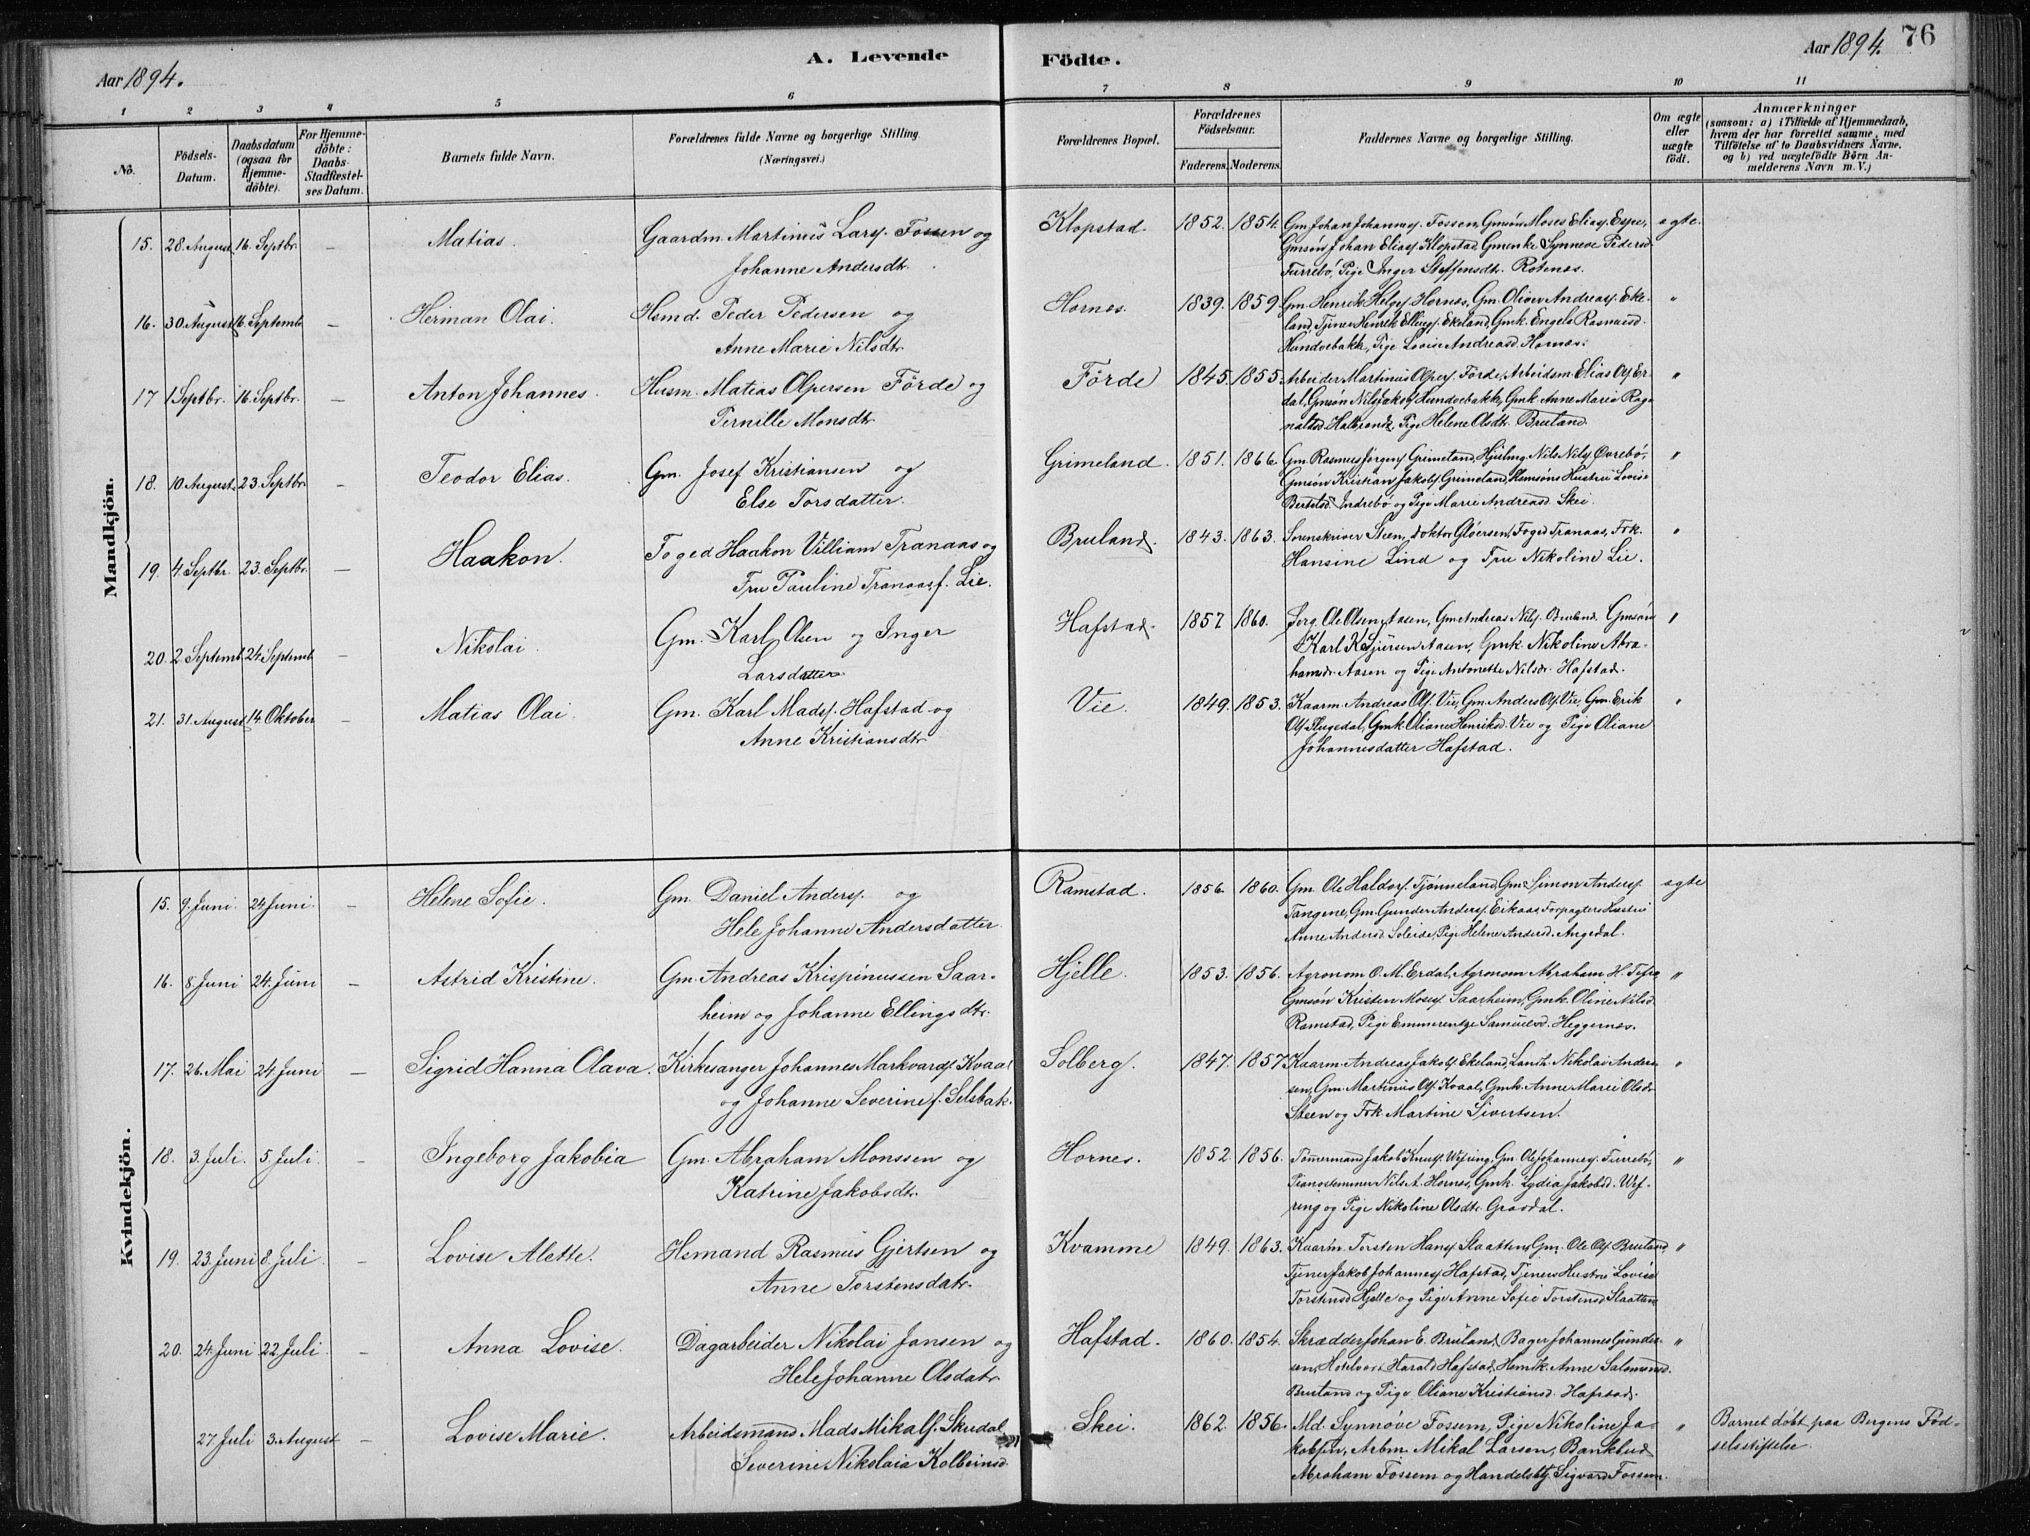 Aar 1894.
A. Levende
Födte.
Aar 1894.
76
1 2 3 4 5 6 7 8 9 10 11
No.
Födsels-
Datum.
Daabsdatum
(ogsaa for
Hjemme-
döbte).
For Hjemme-
döbte:
Daabs-
Stadfæstel-
ses Datum.
Barnets fulde Navn.
Forældrenes fulde Navne og borgerlige Stilling.
(Næringsvei.)
Forældrenes Bopæl.
Forældrenes
Födselsaar.
Faderens. Moderens.
Faddernes Navne og borgerlige Stilling.
Om ægte
eller
uægte
födt.
Anmærkninger
(saasom: a) i Tilfælde af Hjemmedaab,
hvem der har forrettet samme, med
Tilföielse af to Daabsvidners Navne,
og b) ved uægtefödte Börn An-
melderens Navn m. V.)
Mandkjön.
15. 28. August 16. Septbr. – Matias. Gaardm. Martinus Larsf. Fossen og
Johanne Andersdtr.
Klopstad. 1852. 1854. Gm. Johan Johannesf. Fossen, Gmsön Moses Eliasf. Espe, ægte.
Gmsön Johan Eliasf. Klopstad, Gmenke Synneve Pedersd.
Furrebö, Pige Inger Steffensdtr. Rotenæs.
16. 30. August 16. Septemb. – Herman Olai. Hsmd. Peder Pedersen og
Anne Marie Nilsdtr.
Hornes. 1839. 1859. Gm. Henrik Helgesf. Hornes, Gm. Oliver Andreasf. Eke- "
land, Tjener Henrik Ellingsf. Ekeland, Gmk. Engels Rasmusd.
Hundvebakk, Pige Lovise Andreasd. Hornes.
17 1 Septbr. 16. Septbr. – Anton Johannes. Husm. Matias Olpersen Förde og
Pernille Monsdtr.
Förde 1845. 1855. Arbeider Martinus Olpersf. Förde, Arbeidsm. Elias Olsf. Er- "
dal, Gmsön Nils Jakobsf. Hundvebakk, Gmk. Anne Marie Rag-
naldsd. Halbrend, Pige Helene Olsdtr. Bruland.
18. 10. August 23. Septbr. – Teodor Elias. Gm. Josef Kristiansen og
Else Torsdatter.
Grimeland. 1851. 1866. Gm. Rasmus Jörgensf. Grimeland, Nils Nilsf. Övrebö, "
Gmsön Kristian Jakobsf. Grimeland, Hustru Lovise
Bertelsd. Indrebö og Pige Marie Andreasd. Skei.
19. 4. Septbr. 23. Septbr. – Haakon. Foged Haakon Villiam Tranaas og
Fru Pauline Tranaas f. Lie.
Bruland. 1843. 1863. Sorenskriver Steen, Doktor Gloersen, Foged Tranaas, Frk. "
Hansine Lind og Fru Nikoline Lie.
20. 2. Septemb. 24. Septemb. – Nikolai. Gm. Karl Olsen og Inger
Larsdatter
Hafstad. 1857 1860. Ole Olsen Aasen, Gm. Andreas Nilsf. Bruland, Gmsön "
Karl K. Sjursen Aasen, Gmk. Nikoline Abra-
hamsdr. Aasen og Pige Antonette Nilsdr. Hafstad.
21. 31. August 14. Oktober – Matias Olai. Gm. Karl Madsf. Hafstad og
Anne Kristiansdtr.
Vie. 1849. 1853. Kaarm. Andreas Olsf. Vie, Gm. Anders Olsf. Vie, Gm. Erik "
Olsf. Flugedal, Gmk. Oliane Henriksd. Vie og Pige Oliane
Johannesdatter Hafstad.
Kvindekjön.
15. 9. Juni. 24. Juni. – Helene Sofie. Gm. Daniel Andersf. og
Hele Johanne Andersdatter.
Ramstad. 1856. 1860. Gm. Ole Haldorsf. Tjönneland, Gm. Simon Andersf. ægte
Tangene, Gm. Gunder Andersf. Eikaas, Forpagters Hustru
Anne Andersd. Soleide, Pige Helene Andersd. Angedal.
16. 8. Juni 24. Juni – Astrid Kristine. Gm. Andreas Krispinussen Saar-
heim og Johanne Ellingsdtr.
Hjelle. 1853. 1856. Agronom O. M. Erdal, Agronom Abraham H. Tefre "
Gmsön Kristen Mosesf. Saarheim, Gmk. Oline Nilsd.
Ramstad, Pige Emmerentze Samuelsd. Heggernæs.
17. 26. Mai 24. Juni – Sigrid Hanna Olava. Kirkesanger Johannes Markvardsf. Kvaal
og Johanne Severine f. Selsbak.
Solberg. 1847. 1857 Kaarm. Andreas Jakobsf. Ekeland, Landh. Nikolai Ander- "
sen, Gm. Martinus Olsf. Kvaal, Gmk. Anne Marie Olsd.
Steen og Frk Martine Sivertsen.
18. 3. Juli. 5. Juli. – Ingeborg Jakobia Gm. Abraham Monssen og
Katrine Jakobsdtr.
Hornes. 1852. 1856. Tömermand Jakob Knutsf. Wefring, Gm. Ole Johannesf. Furrebö, "
Pianostemmer Nils A. Hornes, Gmk. Lydia Jakobsd. Wef-
ring og Pige Nikoline Olsdtr. Grovdal.
19. 23. Juni 8. Juli. – Lovise Alette. Hsmand Rasmus Gjertsen og
Anne Torstensdatr.
Kvamme 1849. 1863. Kaarm. Torsten Hansf. Slaatten, Gm. Ole Olsf. Bruland "
Tjener Jakob Johannesf. Hafstad, Tjeners Hustru Lovise
Torstensd. Hjelle og Pige Anne Sofie Torstensd. Slaatten
20. 24. Juni 22. Juli. – Anna Lovise. Dagarbeider Nikolai Jansen og
Hele Johanne Olsdatr.
Hafstad. 1860. 1854. Skrædder Johan E. Bruland, Bager Johannes Gunder- "
sen, Harald Hafstad, Hsmk. Anne Salomonsd.
Bruland og Pige Oliane Kristiansd. Hafstad.
27. Juli 3. August – Lovise Marie. Arbeidsmand Mads Mikalsf. Skudal
Severine Nikolaia Kolbeinsd.
Skei. 1862. 1856. Md. Synnöve Fossum, Pige Nikoline Ja- "
kobsen, Arbm. Mikal Larsen, Bankbud
Abraham Fossem og Handelsbtj. Sigvard Fossem.
Barnet döbt paa Bergens Föd-
selsstiftelse.